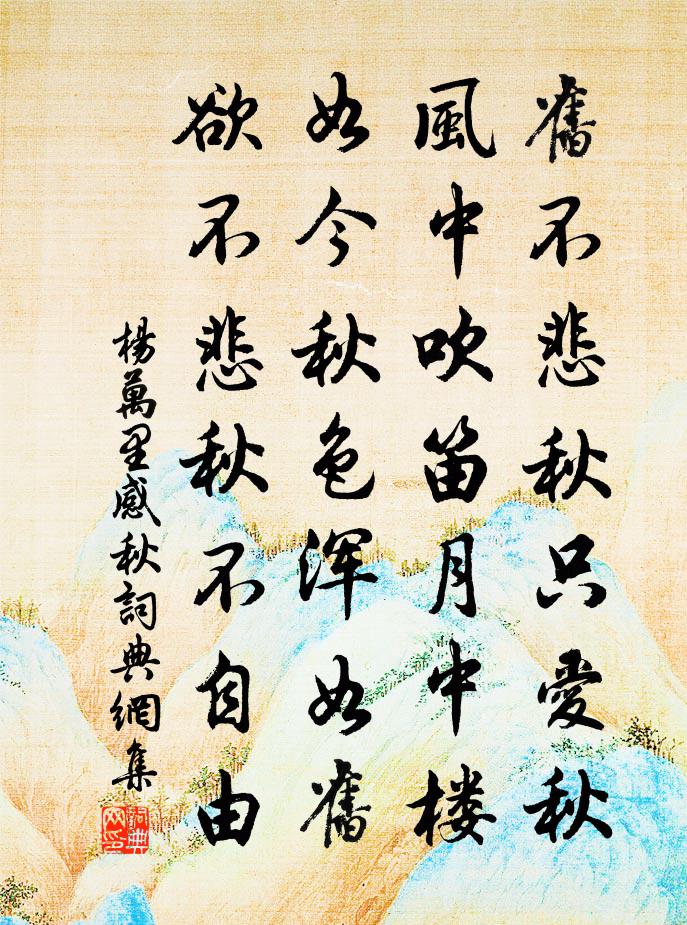 舊不悲秋只愛秋
風中吹笛月中楼
如今秋色浑如舊
欲不悲秋不自由
楊萬里感秋詞典網集
詞典網印